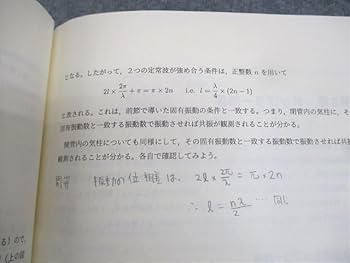 となる。したがって，2つの定常波が強め合う条件は，正整数 n を用いて
2l × 2π/λ + π = π × 2n   i.e. l = λ/4 × (2n−1)
と表される。これは，前節で導いた固有振動の条件と一致する。つまり，閉管内の気柱に，そ
固有振動数と一致する振動数で振動させれば共振が観測されることが分かる。
開管内の気柱についても同様にして，その固有振動数と一致する振動数で振動させれば共振
観測されることが分かる。各自で確認してみよう。
開管 振動の位相差は、 2l × 2π/λ = π × 2n
∴ l = nλ/2 … 同じ
る)ので,
(上の図